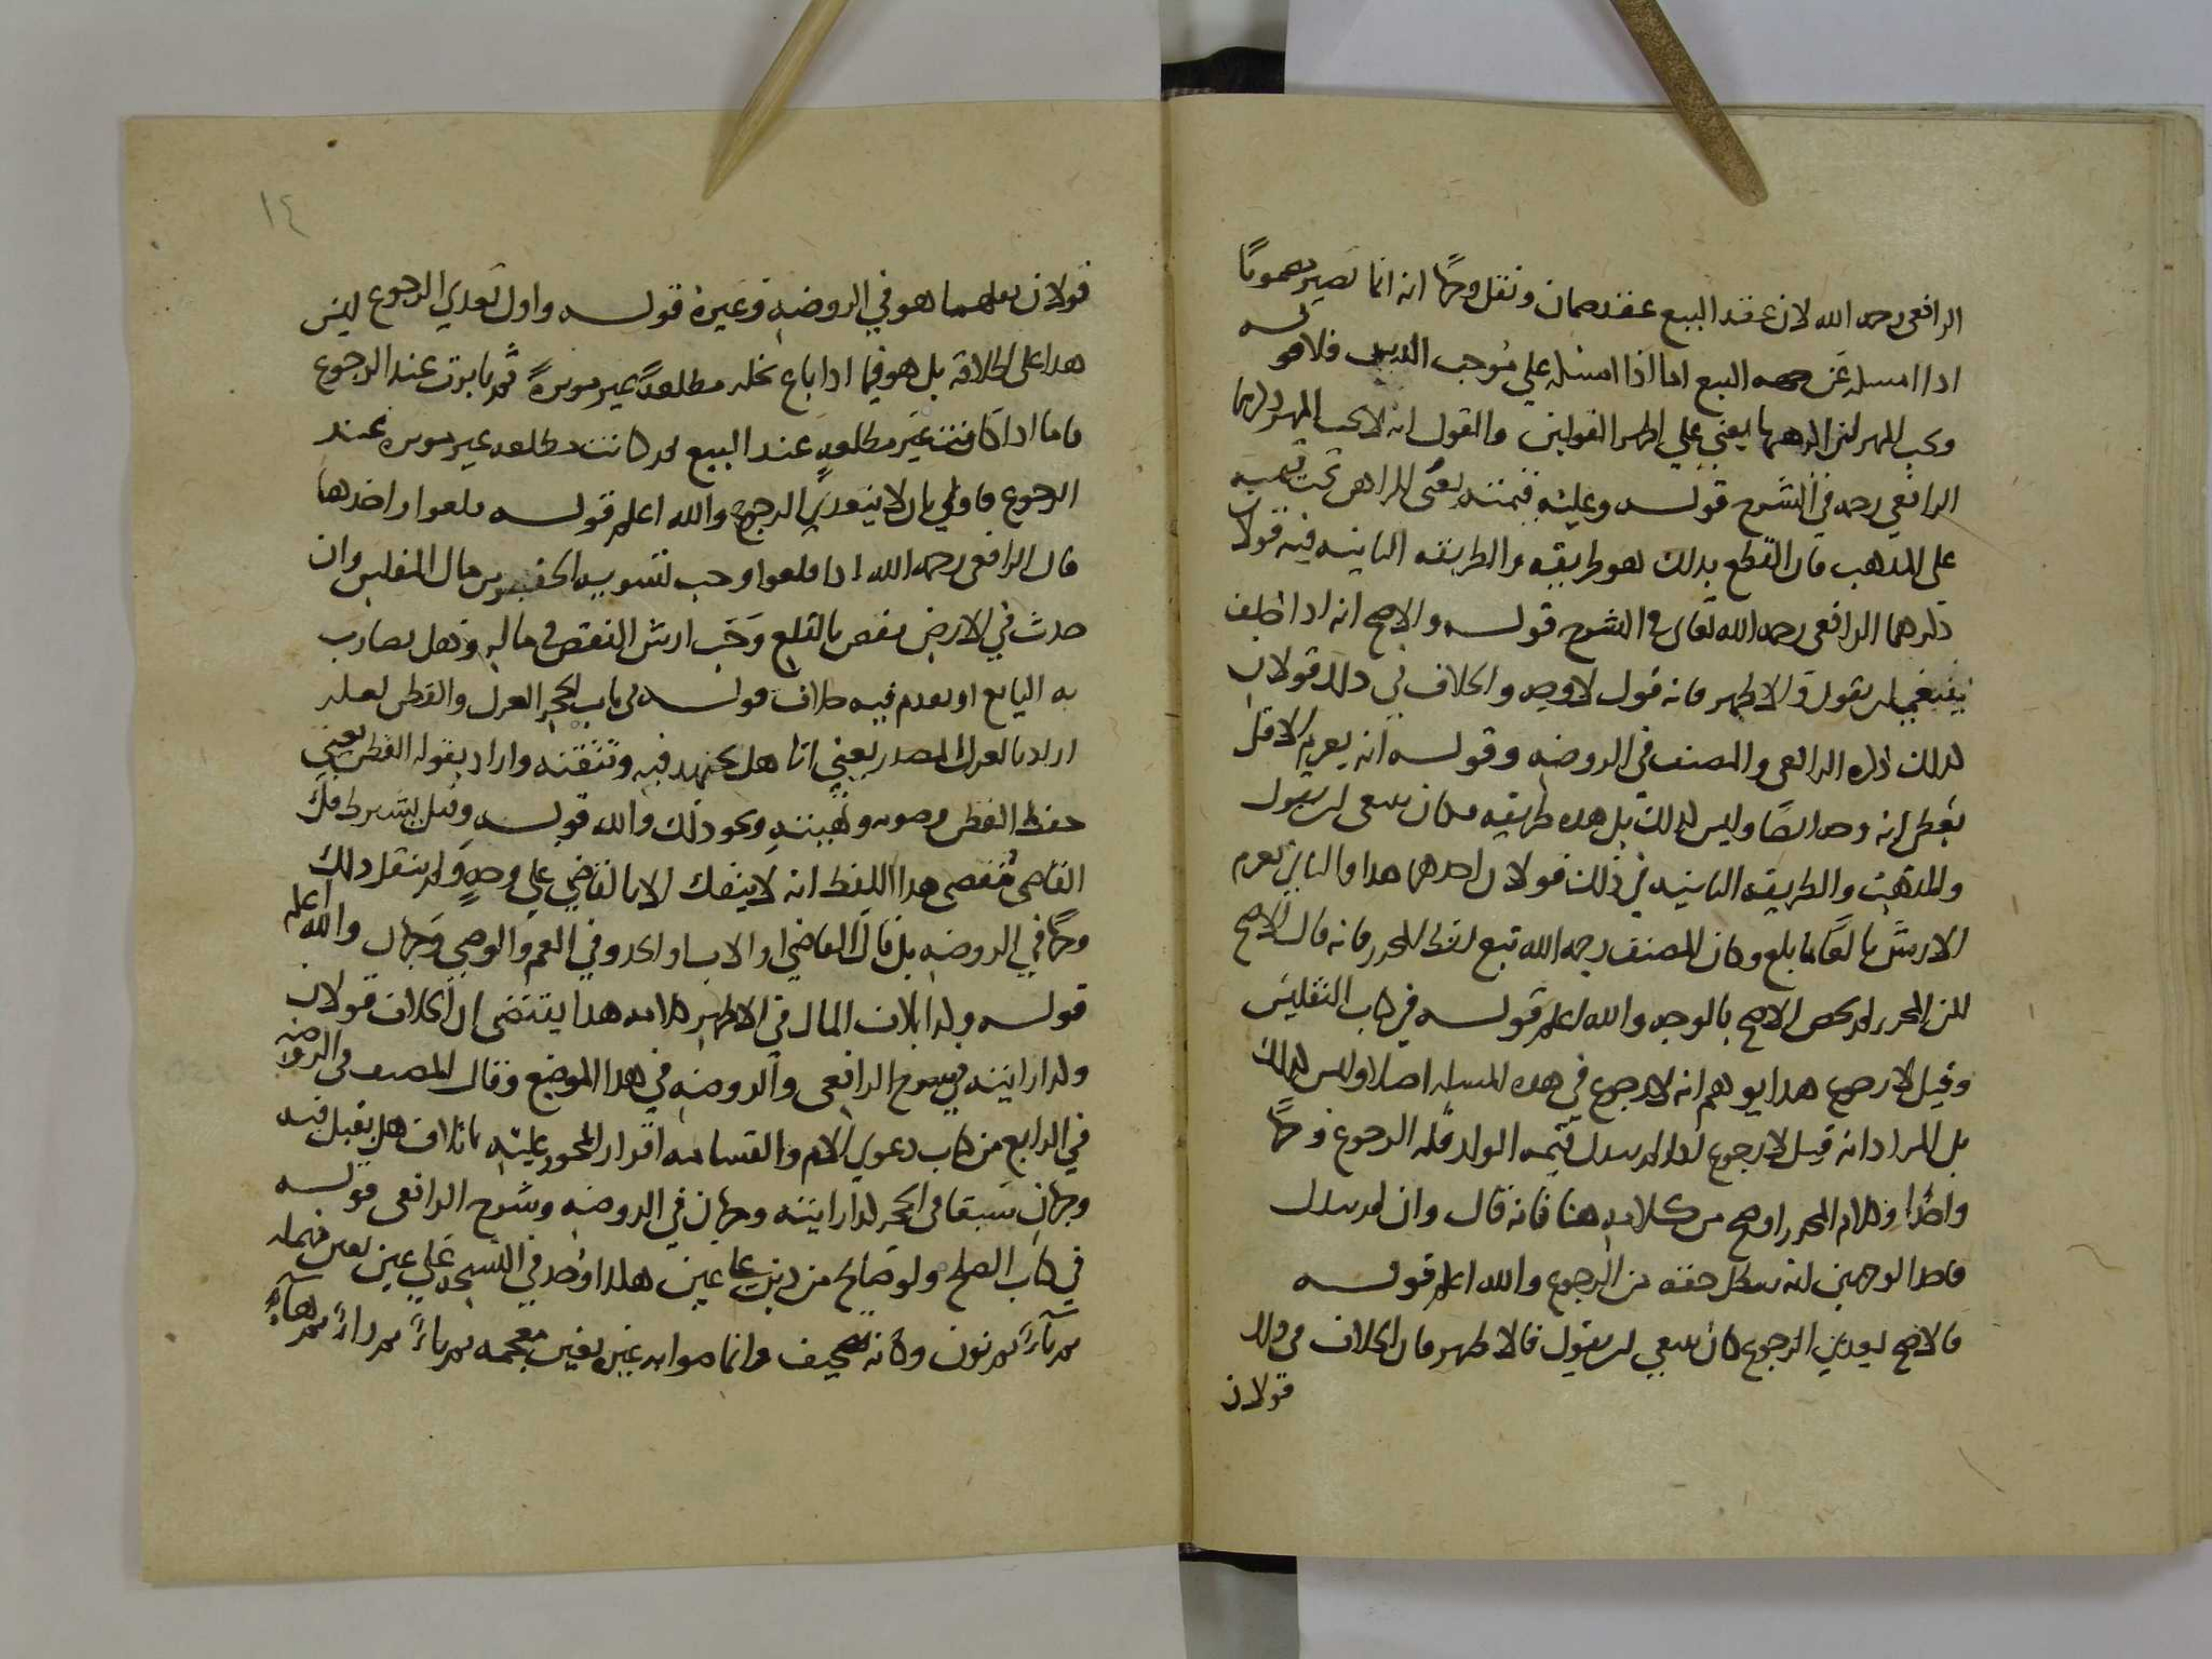 الرافعي رحمه الله لان عقد البيع عقد ضمان ونقل وجها انه انما يصير مضمونا
اذا امسكه عن جهه البيع اما اذا امسكه علي موجب الدين فلا قوله
ويجب المهر لزم المرهونها يعني علي اظهر القولين والقول انه لا يجب المهر ذكرهما
الرافعي رحمه في الشرح قوله وعليه قيمته يعني الراهن تجب قيمته
على المذهب فان القطع بذلك هو طريقه والطريقه الثانيه فيه قولان
ذكرهما الرافعي رحمه الله تعالى في الشرح قوله والاصح انه اذا اختلف
ينبغي ان يقول والاظهر فانه قول لا وجه والخلاف في ذلك قولان
كذلك ذكره الرافعي والمصنف في الروضه وقوله انه يغرم الاقل
يعطي انه وجه ايضا وليس كذلك بل هذه طريقه فكان ينبغي ان يقول
والمذهب والطريقه الثانيه في ذلك قولان احدهما هذا والثاني يغرم
الارش بالغا ما بلغ وكان المصنف رحمه الله تبع لفظ المحرر فانه قال الاصح
لكن المحرر لم يخص الاصح بالوجه والله اعلم قوله في كتاب التفليس
وقيل لا رجوع هذا يوهم انه لا رجوع في هذه المسله اصلا وليس كذلك
بل المراد انه قيل لا رجوع اذا لم يبذل قيمه الولد فله الرجوع وجها
واحدا وكلام المحرر اوضح من كلامه هنا فانه قال وان لم يبذل
فاحد الوجهين انه يبطل حقه من الرجوع والله اعلم قوله
فالاصح تعدي الرجوع كان ينبغي ان يقول فالاظهر فان الخلاف في ذلك
قولان
١٤
قولان نقلهما هو في الروضه وغيره قوله واولى بتعدي الرجوع ليس
هذا على اطلاقه بل هو فيما اذا باع نخله مطلعه غير موبره ثم تابرت عند الرجوع
فاما اذا كانت غير مطلعه عند البيع ثم كانت مطلعه غير موبره عند
الرجوع فاولي بان لا يتعدي الرجوع والله اعلم قوله قلعوا واخذها
قال الرافعي رحمه الله اذا قلعوا وجب تسويه الحفر من مال المفلس وان
حدث في الارض نقص بالقلع وجب ارش النقص في ماله وهل يضارب
به البايع او يقدم فيه خلاف قوله في باب الحجر الغزل والقطن لعله
اراد بالغزل المصدر يعني انها هل تجتهد فيه وتتقنه واراد بقوله القطن يعني
حفظ القطن وصونه وهيئته ونحو ذلك والله قوله وقيل يشترط فك
القاضي مقتضي هذا اللفظ انه لا ينفك الا بالقاضي علي وجه ولم ينقل ذلك
وجها في الروضه بل قال القاضي او الاب او الجد وفي العم والوصي وجهان والله اعلم
قوله وكذا باتلاف المال في الاظهر كلامه هذا يقتضي ان الخلاف قولان
وكذا رايته في شرح الرافعي والروضه في هذا الموضع وقال المصنف في الروضه
في الرابع من كتاب دعوي الدم والقسامه اقرار المحجور عليه باتلاف هل يقبل فيه
وجهان سبقا في الحجر كذا رايته وجهان في الروضه وشرح الرافعي قوله
في كتاب الصلح ولو صالح من دين علي عين هكذا وجد في النسخ علي عين بعين مهمله
ثم ياء ثم نون وكانه تصحيف وانما صوابه غيره بغين معجمه ثم ياء ثم راء ثم هاء